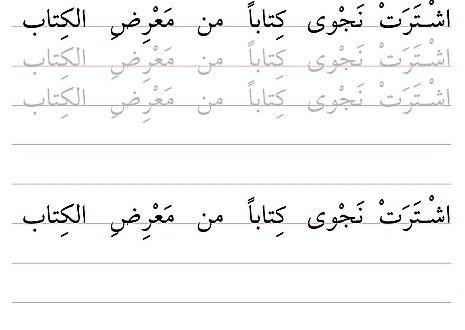 اشْتَرَتْ نَجْوى كِتاباً من مَعْرِضِ الكِتاب
اشْتَرَتْ نَجْوى كِتاباً من مَعْرِضِ الكِتاب
اشْتَرَتْ نَجْوى كِتاباً من مَعْرِضِ الكِتاب
اشْتَرَتْ نَجْوى كِتاباً من مَعْرِضِ الكِتاب